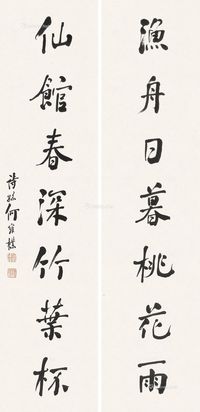 漁舟日暮桃花雨
仙館春深竹葉杯
詩孫何維樸